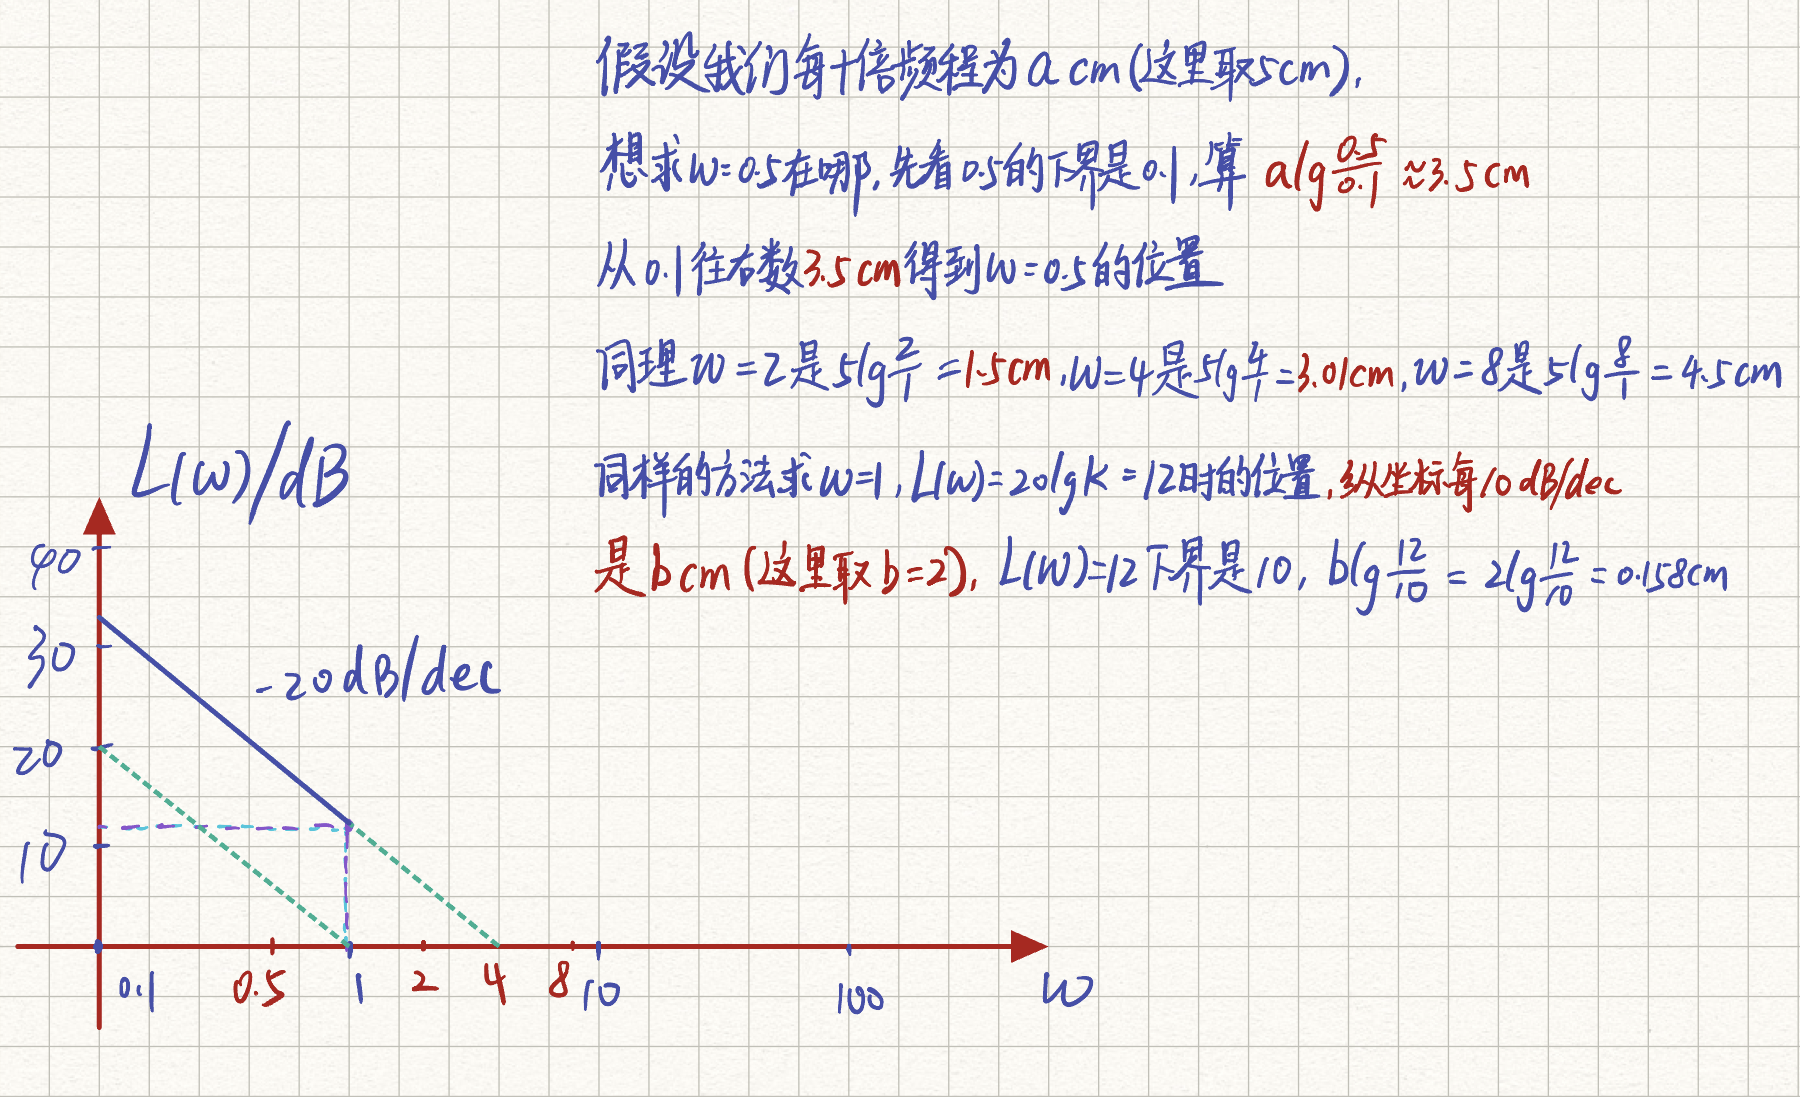 假设我们每十倍频程为a cm(这里取5cm),
想求w=0.5在哪,先看0.5的下界是0.1,算 alg 0.5/0.1 ≈3.5cm
从0.1往右数3.5cm得到w=0.5的位置
同理w=2是5lg 2/1 =1.5cm,w=4是5lg 4/1=3.01cm,w=8是5lg 8/1 = 4.5cm
同样的方法求w=1,L(w)=20lgk=12时的位置,纵坐标每10dB/dec
是bcm(这里取b=2),L(w)=12下界是10, blg 12/10 = 2lg 12/10 = 0.158cm
L(w)/dB
40
30
-20dB/dec
20
10
0.1 0.5 1 2 4 8 10 100 w